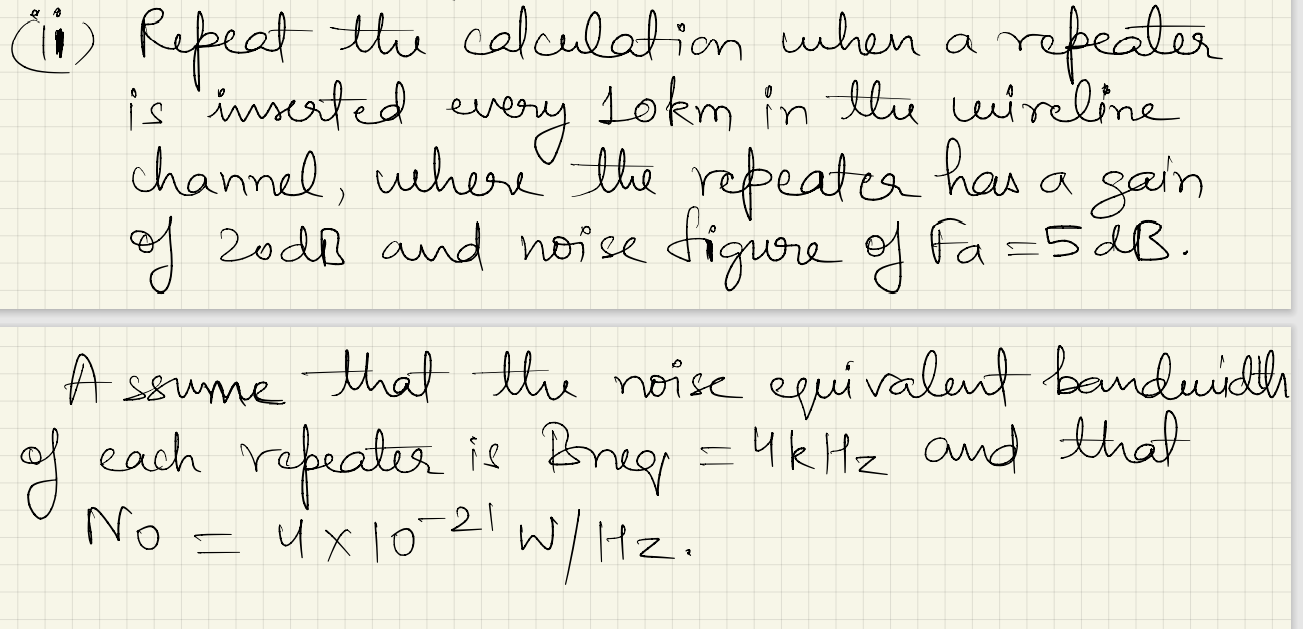 (ii) Repeat the calculation when a repeater
is inserted every 10km in the wireline
channel, where the repeater has a gain
of 20dB and noise figure of Fa = 5dB.
Assume that the noise equivalent bandwidth
of each repeater is Bneq = 4kHz and that
No = 4×10⁻²¹ W/Hz.